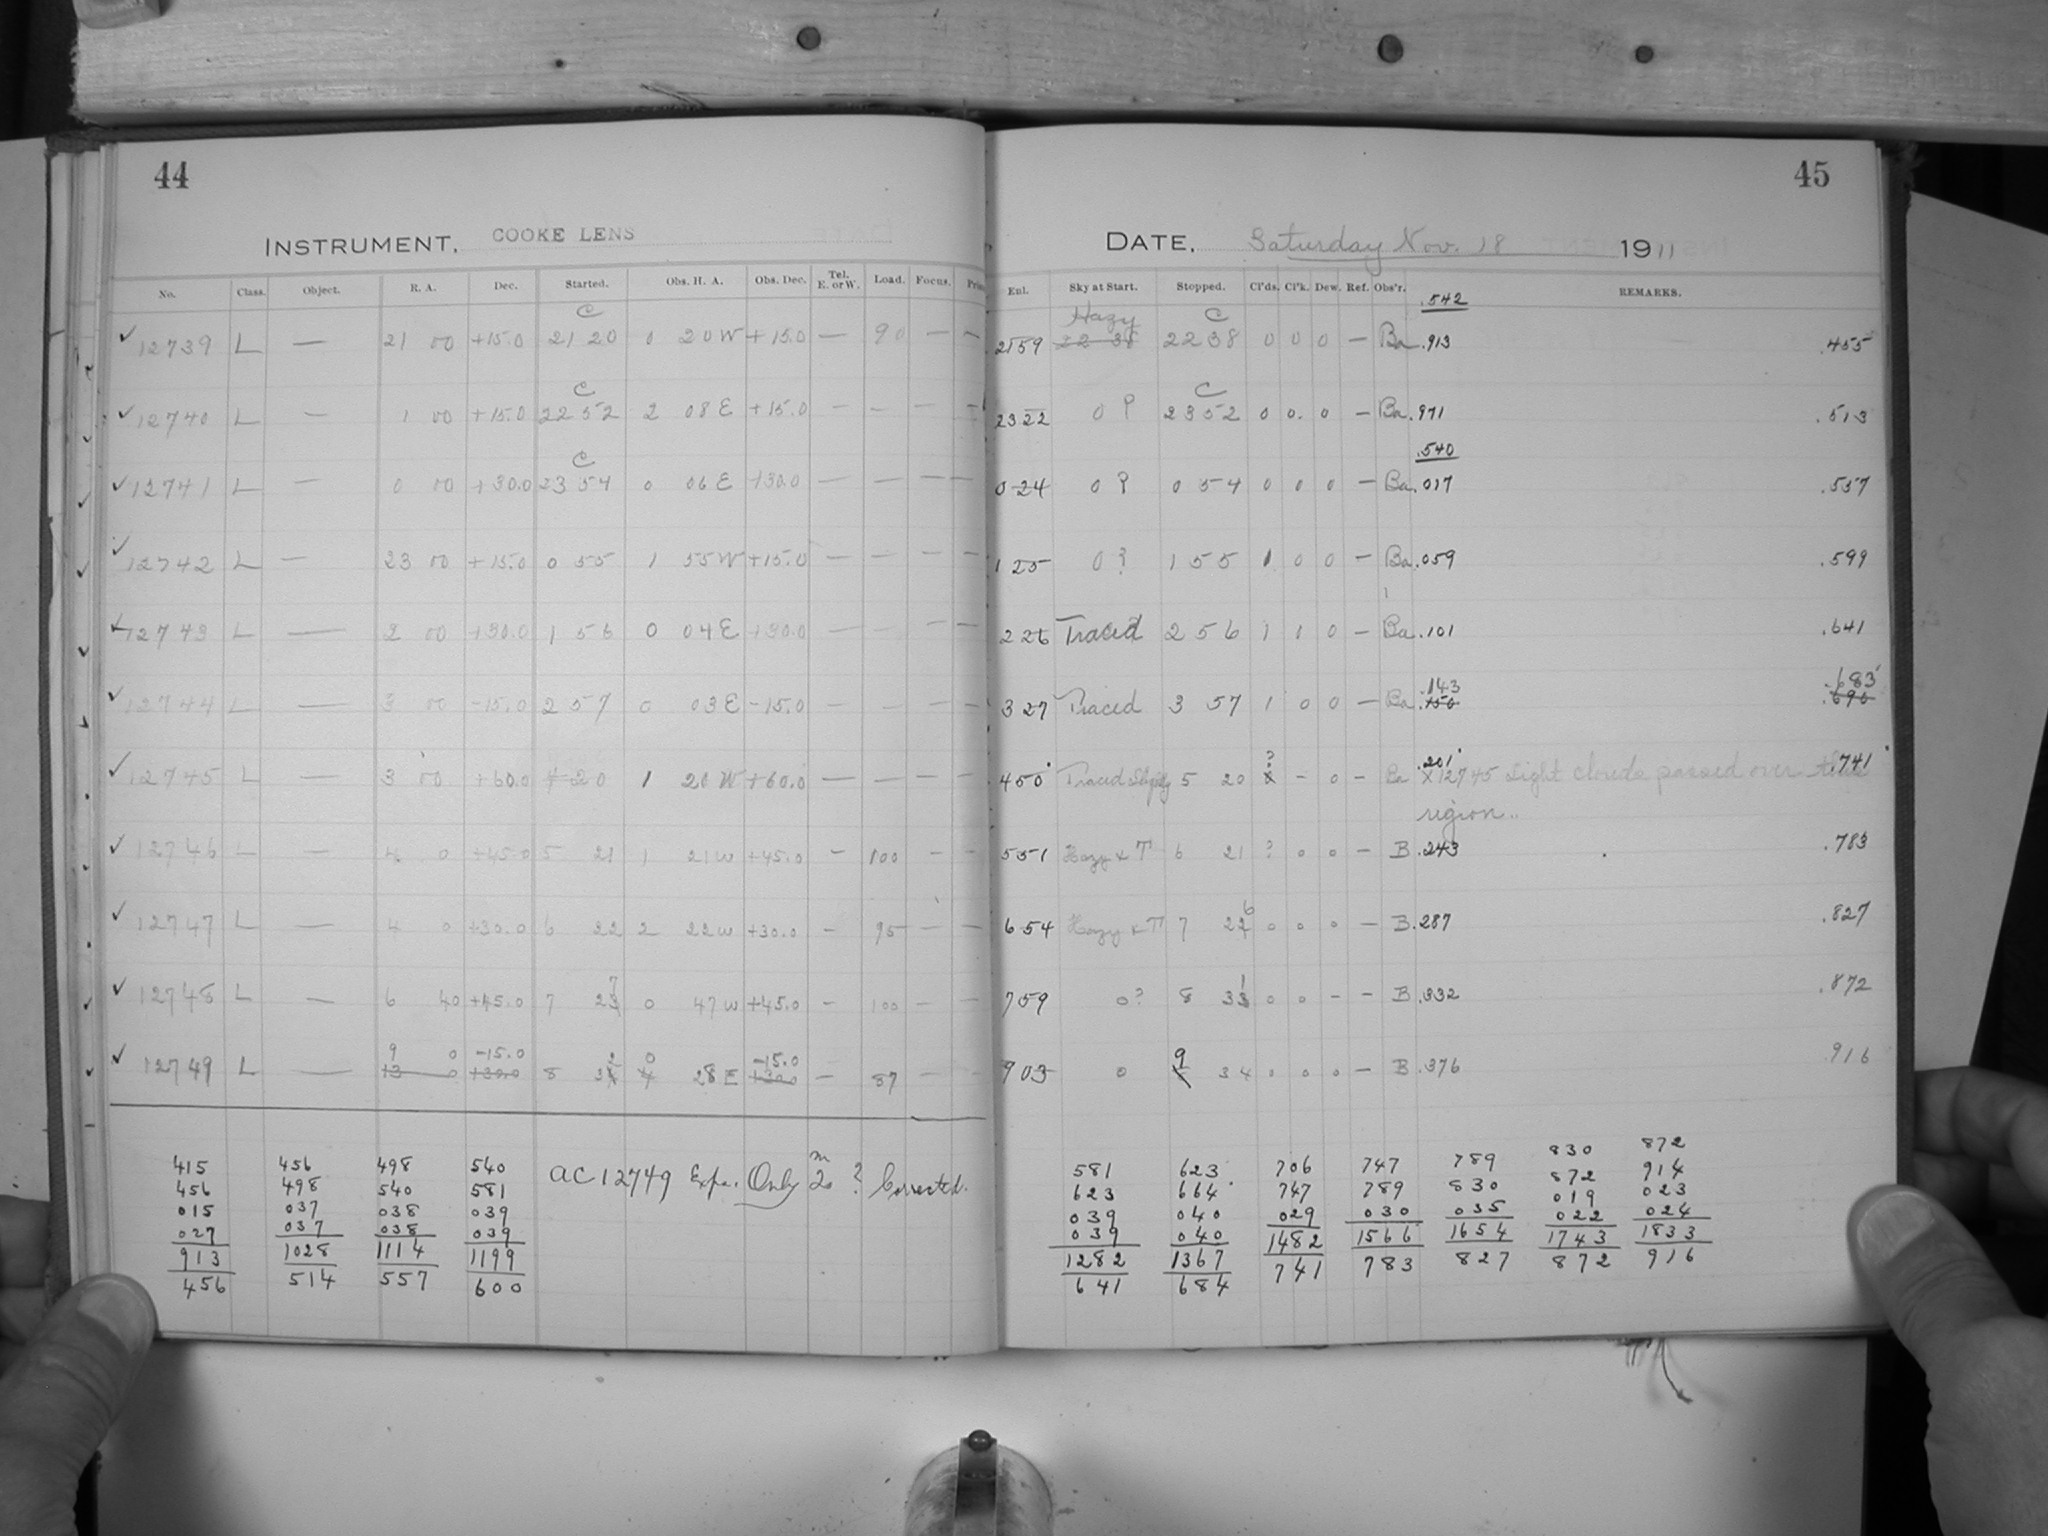 44
45
INSTRUMENT. COOKE LENS
DATE. Saturday Nov. 18 1911
No. Class. Object. R. A. Dec. Started. Obs. H. A. Obs. Dec. Tel. E. or W. Load. Focus.
Sky at Start. Stopped. Cl'ds. Cl'k. Dew. Ref. Obs'r. REMARKS.
.542
C Hazy C
12739 L — 21 00 +15.0 21 20 0 20 W +15.0 — 90 — — 2159 22 38 22 38 0 0 0 — Ba .913 .455
C C
12740 L — 1 00 +15.0 22 52 2 08 E +15.0 — — — — 2322 0 ? 23 52 0 0. 0 — Ba .971 .513
C .540
12741 L — 0 00 +30.0 23 54 0 06 E +30.0 — — — — 0 24 0 ? 0 54 0 0 0 — Ba .017 .557
12742 L — 23 00 +15.0 0 55 1 55 W +15.0 — — — — 1 25 0 ? 1 55 1 0 0 — Ba .059 .599
12743 L — 2 00 +30.0 1 56 0 04 E +30.0 — — — — 2 26 Traced 2 56 1 1 0 — Ba .101 .641
.143 .683
12744 L — 3 00 -15.0 2 57 0 03 E -15.0 — — — — 3 27 Traced 3 57 1 0 0 — Ba .150 .690
? .201 .741
12745 L — 3 00 +60.0 4 20 1 20 W +60.0 — — — — 4 50 Traced 5 20 x — 0 — Ba x 12745 Light clouds passed over
region.
12746 L — 4 0 +45.0 5 21 1 21 W +45.0 — 100 — — 551 Hazy & T 6 21 ? 0 0 — B .243 .783
12747 L — 4 0 +30.0 6 22 2 22 W +30.0 — 95 — — 654 Hazy & T 7 22 6 0 0 0 — B .287 .827
12748 L — 6 40 +45.0 7 23 7 0 47 W +45.0 — 100 — — 759 0 ? 8 33 1 0 0 — — B .332 .872
9 0 -15.0 0 -15.0 9 .916
12749 L — 13 0 +30.0 8 28 E +30.0 — 87 — — 903 0 34 0 0 0 — B .376
415 456 498 540 AC 12749 Expo. Only 2m ? Corrected. 581 623 706 747 789 830 872
456 498 540 581 623 664 747 789 830 872 914
015 037 038 039 039 040 029 030 035 019 023
027 037 038 039 039 040 022 024
913 1028 1114 1199 1282 1367 1482 1566 1654 1743 1833
456 514 557 600 641 684 741 783 827 872 916